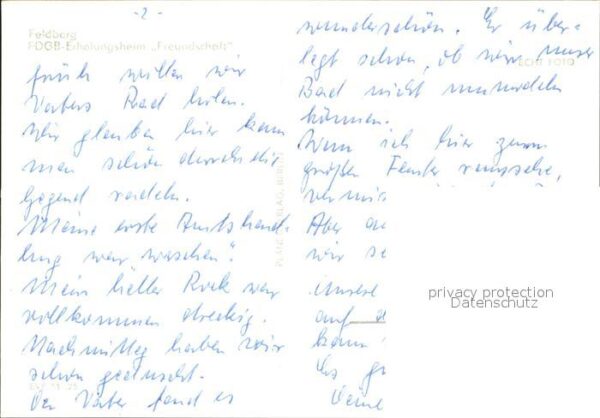 -2-
Feldberg
FDGB-Erholungsheim „Freundschaft"
früh wollen wir
Vaters Rad holen.
Wir glauben hier kann
man schön durch die
Gegend radeln.
Meine erste Amtshand-
lung war waschen".
Mein heller Rock war
vollkommen dreckig.
Nachmittag haben wir
schon geduscht.
Der Vater fand es
wunderschön. Er über-
legt schon, ob wir unser
Bad nicht ummodeln
können.
Wenn ich hier zum
großen Fenster raussehe,
Aber
wir
Unsere
auf
kann
Es
Deine
ECHT FOTO
privacy protection
Datenschutz